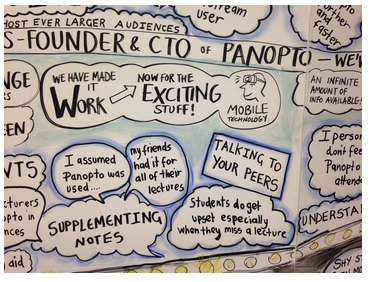 HOST EVER LARGER AUDIENCES
tream
user
further
and
faster
S-FOUNDER & CTO OF PANOPTO - WE'V
NGE
WE HAVE MADE
IT
WORK
NOW FOR THE
EXCITING
STUFF!
MOBILE
TECHNOLOGY
AN INFINITE
AMOUNT OF
INFO AVAILABLE!
EEN
VTS
I assumed
Panopto was
used....
my friends
had it for
all of their
lectures
TALKING TO
YOUR PEERS
I person
don't fee
Panopto
attend
cturers
opto in
nces
SUPPLEMENTING
NOTES
Students do get
upset especially
when they miss a lecture
UNDERSTA
aid
SHY ST